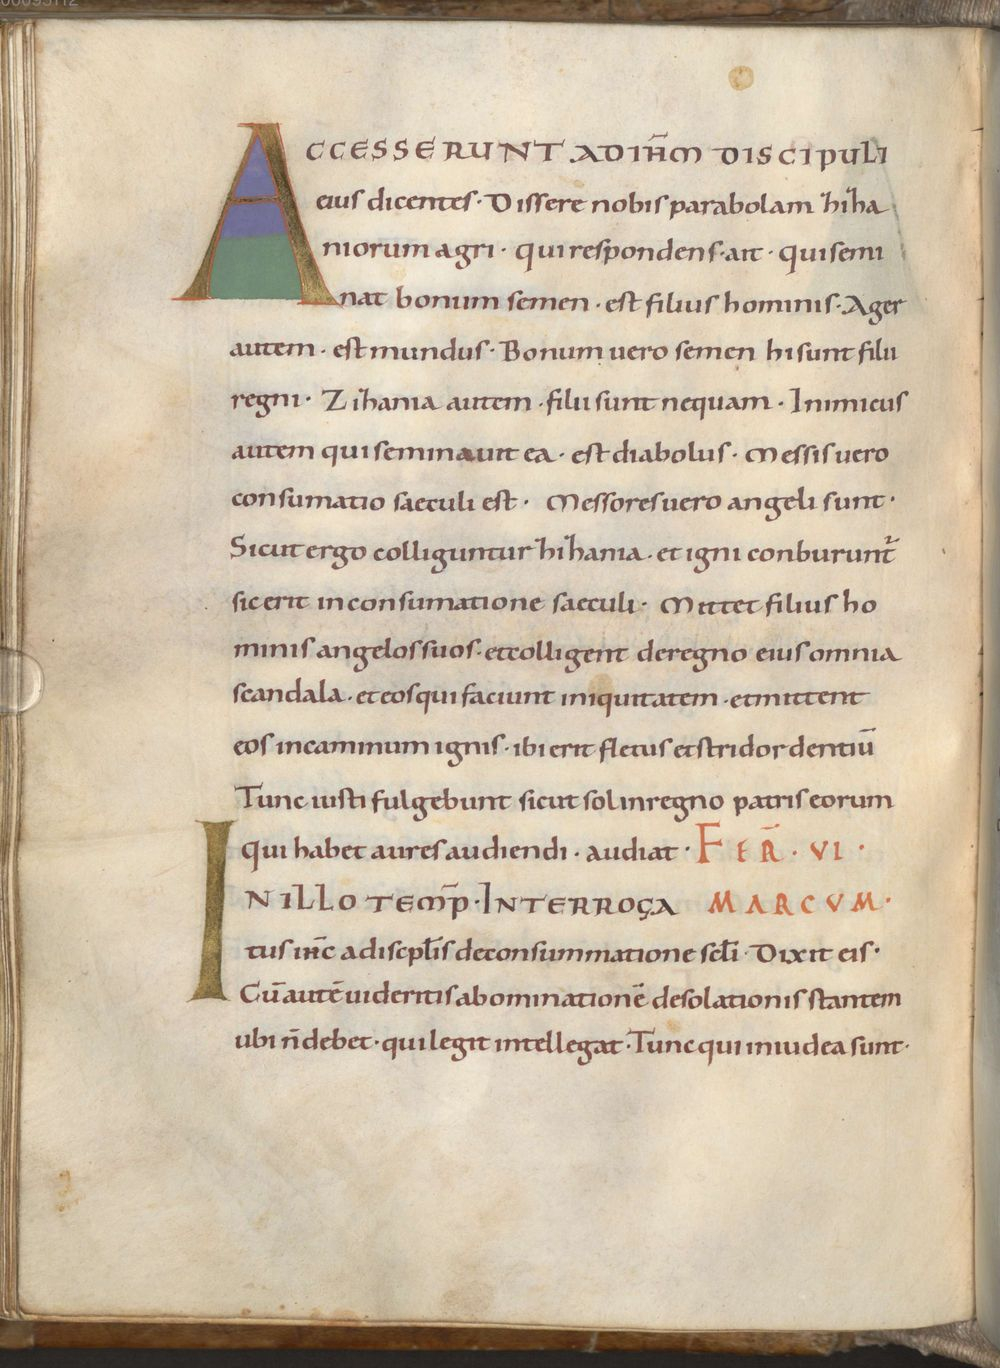 ACCESSERUNT AD IHM DISCIPULI
eius dicentes · Dissere nobis parabolam hiha
niorum agri · qui respondens · ait · qui semi
nat bonum semen · est filius hominis · Ager
autem · est mundus · Bonum uero semen hi sunt filii
regni · Zihania autem · filii sunt nequam · Inimicus
autem qui seminauit ea · est diabolus · Messis uero
consumatio saeculi est · Messores uero angeli sunt ·
Sicut ergo colliguntur hihania · et igni conburunt̄
sic erit in consumatione saeculi · Mittet filius ho
minis angelos suos · et colligent de regno eius omnia
scandala · et eos qui faciunt iniquitatem · et mittent
eos in caminum ignis · ibi erit fletus et stridor dentiū
Tunc iusti fulgebunt sicut sol in regno patris eorum
qui habet aures audiendi · audiat · FER̄ · VI ·
IN ILLO TEMP̄ · INTERROGA MARCUM ·
tus ihc̄ a discipl̄is de consummatione scl̄i · Dixit eis ·
Cū autē uideritis abominationē desolationis stantem
ubi n̄ debet · qui legit intellegat · Tunc qui in iudea sunt ·